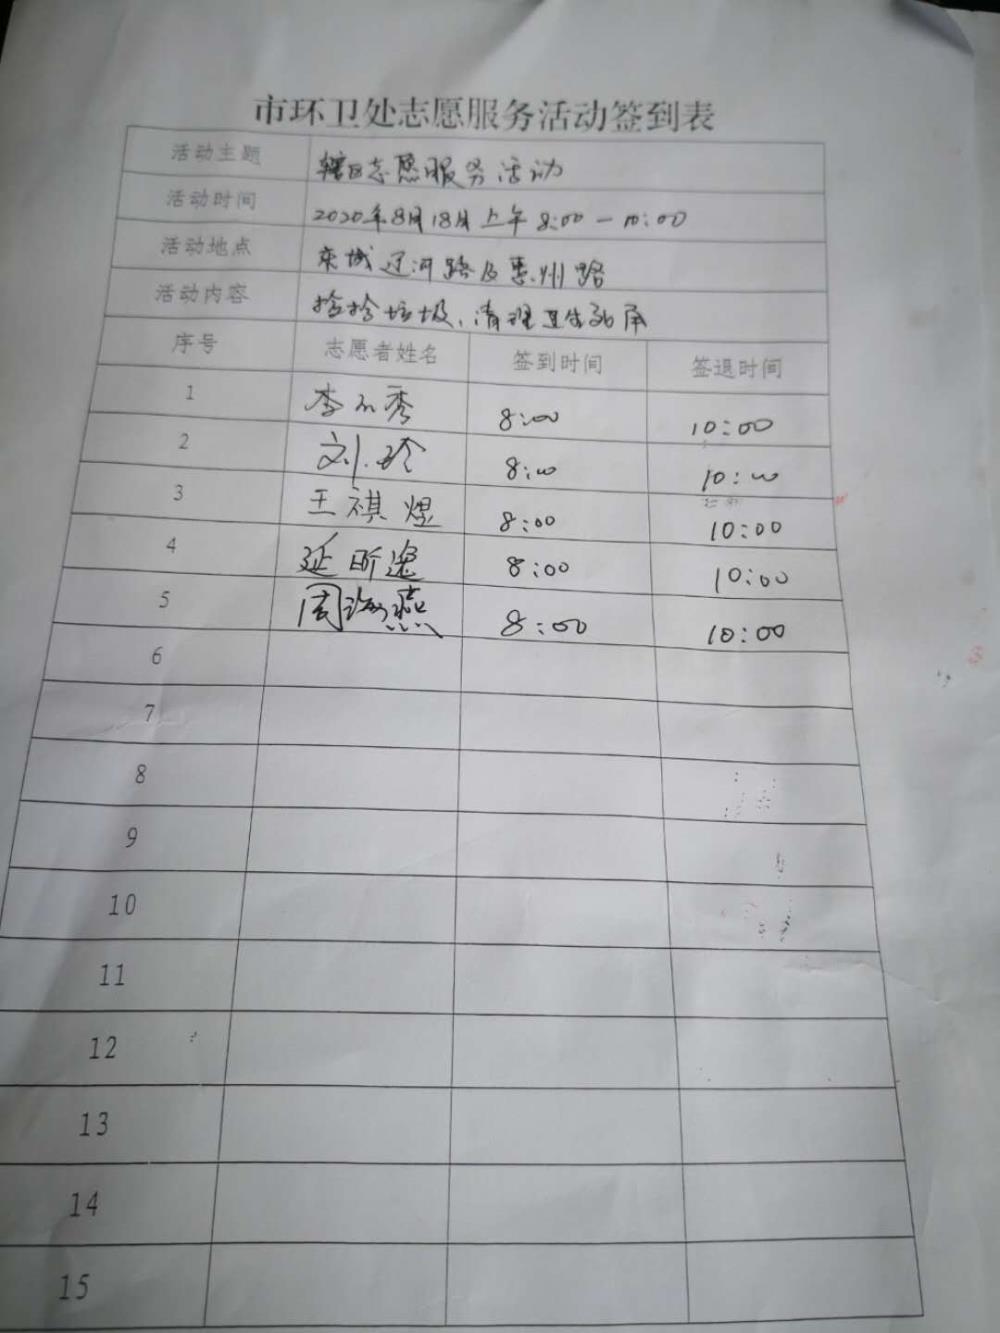 市环卫处志愿服务活动签到表
活动主题 辖区志愿服务活动
活动时间 2020年8月18日上午8:00—10:00
活动地点 栾城辽河路及惠州路
活动内容 捡拾垃圾、清理卫生死角
序号 志愿者姓名 签到时间 签退时间
1 李 秀 8:00 10:00
2 刘玲 8:00 10:00
3 王祺煜 8:00 10:00
4 延昕 8:00 10:00
5 周海燕 8:00 10:00
6
7
8
9
10
11
12
13
14
15